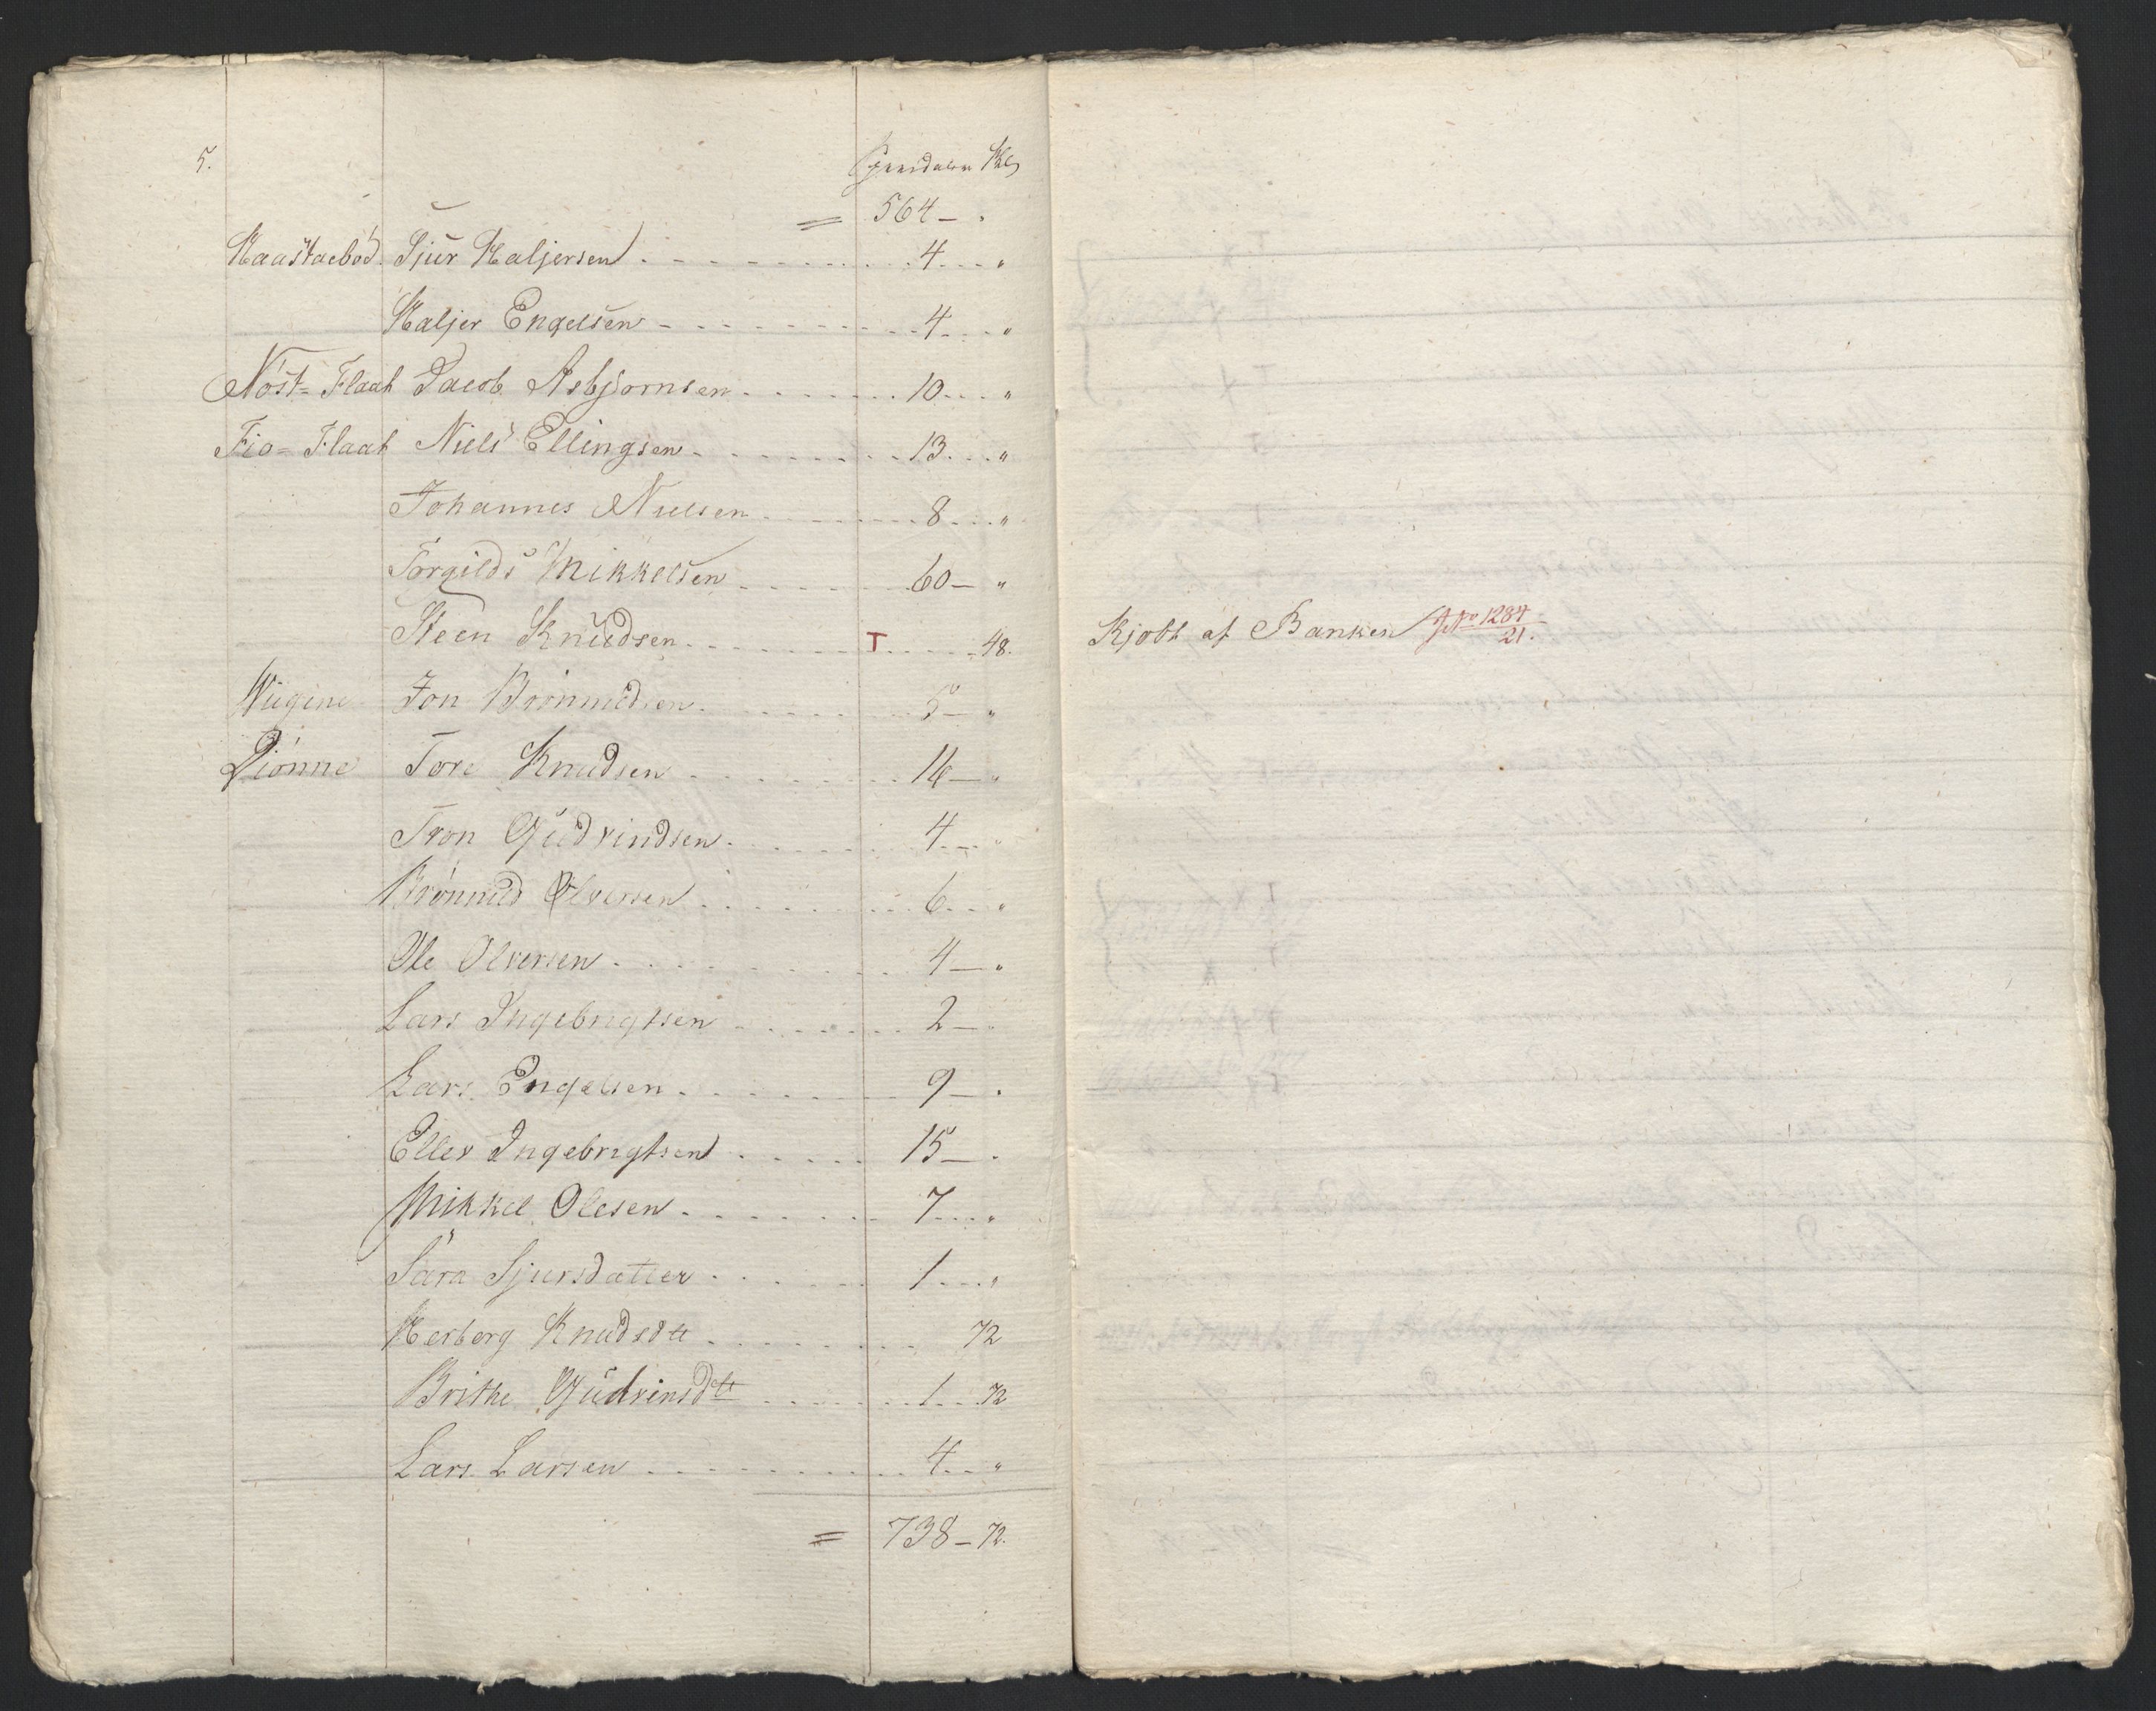 5.
Speciedaler Skl
= 564 — "
Haastaebød Sjur Haljersen 4 "
Haljer Engelsen 4 "
Nøst=Flaat Jacob Asbjørnsen 10 "
Fio=Flaat Niels Ellingsen 13 "
Johannes Nielsen 8 "
Torgilds Mikkelsen 60 — "
Steen Knudsen T 48. Kjøbt af Banken J No 1284/21.
Wiigene Jon Brønmedsen 5 — "
Diønne Tore Knudsen 14 — "
Tron Gudvindsen 4 "
Brønmed Olversen 6 "
Ole Olversen 4 — "
Lars Ingebrigtsen 2 — "
Lars Engelsen 9 — "
Eller Ingebrigtsen 15 — "
Mikkel Olesen 7 "
Sara Sjursdatter 1 "
Herberg Knudsdtt 72
Brithe Gudvinsdtt 1 72
Lars Larsen 4 "
= 738 — 72.